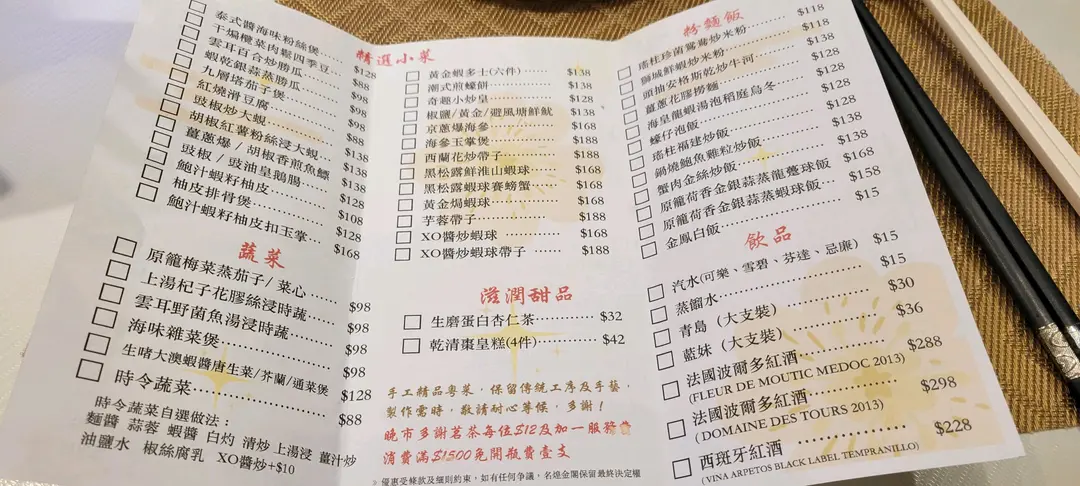 泰式醬海味粉絲煲… $128
干煸欖菜肉鬆四季豆… $88
雲耳百合炒勝瓜
蝦乾銀蒜蒸勝瓜 $128
九層塔茄子煲 $98
紅燒滑豆腐 $88
豉椒炒大蜆
胡椒紅薯粉絲浸大蜆… $138
薑蔥爆 / 胡椒香煎魚鰾 $138
豉椒 / 豉油皇鵝腸 $138
鮑汁蝦籽柚皮 $128
柚皮排骨煲 $108
鮑汁蝦籽柚皮扣玉掌… $168
蔬菜
原籠梅菜蒸茄子/ 菜心 $98
上湯杞子花膠絲浸時蔬 $98
雲耳野菌魚湯浸時蔬 $98
海味雜菜煲 $98
生啫大澳蝦醬唐生菜/芥蘭/通菜煲 $128
時令蔬菜 $88
時令蔬菜自選做法：
麵醬 蒜蓉 蝦醬 白灼 清炒 上湯浸 薑汁炒
油鹽水 椒絲腐乳 XO醬炒+$10
精選小菜
黃金蝦多士(六件) $138
潮式煎蠔餅 $138
奇趣小炒皇 $128
椒鹽/黃金/避風塘鮮魷 $138
京蔥爆海參 $168
海參玉掌煲 $188
西蘭花炒帶子 $188
黑松露鮮淮山蝦球 $168
黑松露蝦球賽螃蟹 $168
黃金焗蝦球 $168
芋蓉帶子 $188
XO醬炒蝦球 $168
XO醬炒蝦球帶子 $188
滋潤甜品
生磨蛋白杏仁茶 $32
乾清棗皇糕(4件) $42
手工精品粵菜，保留傳統工序及手藝，
製作需時，敬請耐心等候，多謝！
晚市多謝茗茶每位$12及加一服務
消費滿$1500免開瓶費壹支
優惠受條款及細則約束，如有任何爭議，名煌金閣保留最終決定權
粉麵飯
瑤柱珍菌鴛鴦炒米粉 $118
獅城鮮蝦炒米粉 $118
頭抽安格斯乾炒牛河 $138
薑蔥花膠撈麵 $128
海皇龍蝦湯泡稻庭烏冬 $138
蠔仔泡飯 $128
瑤柱福建炒飯 $128
鍋燒鮑魚雞粒炒飯 $138
蟹肉金絲炒飯 $138
原籠荷香金銀蒜蒸龍躉球飯 $168
原籠荷香金銀蒜蒸蝦球飯… $158
金鳳白飯 $15
飲品
汽水(可樂、雪碧、芬達、忌廉) $15
蒸餾水 $15
青島（大支裝） $30
藍妹（大支裝） $36
法國波爾多紅酒 $288
(FLEUR DE MOUTIC MEDOC 2013)
法國波爾多紅酒 $298
(DOMAINE DES TOURS 2013)
西班牙紅酒 $228
(VINA ARPETOS BLACK LABEL TEMPRANILLO)